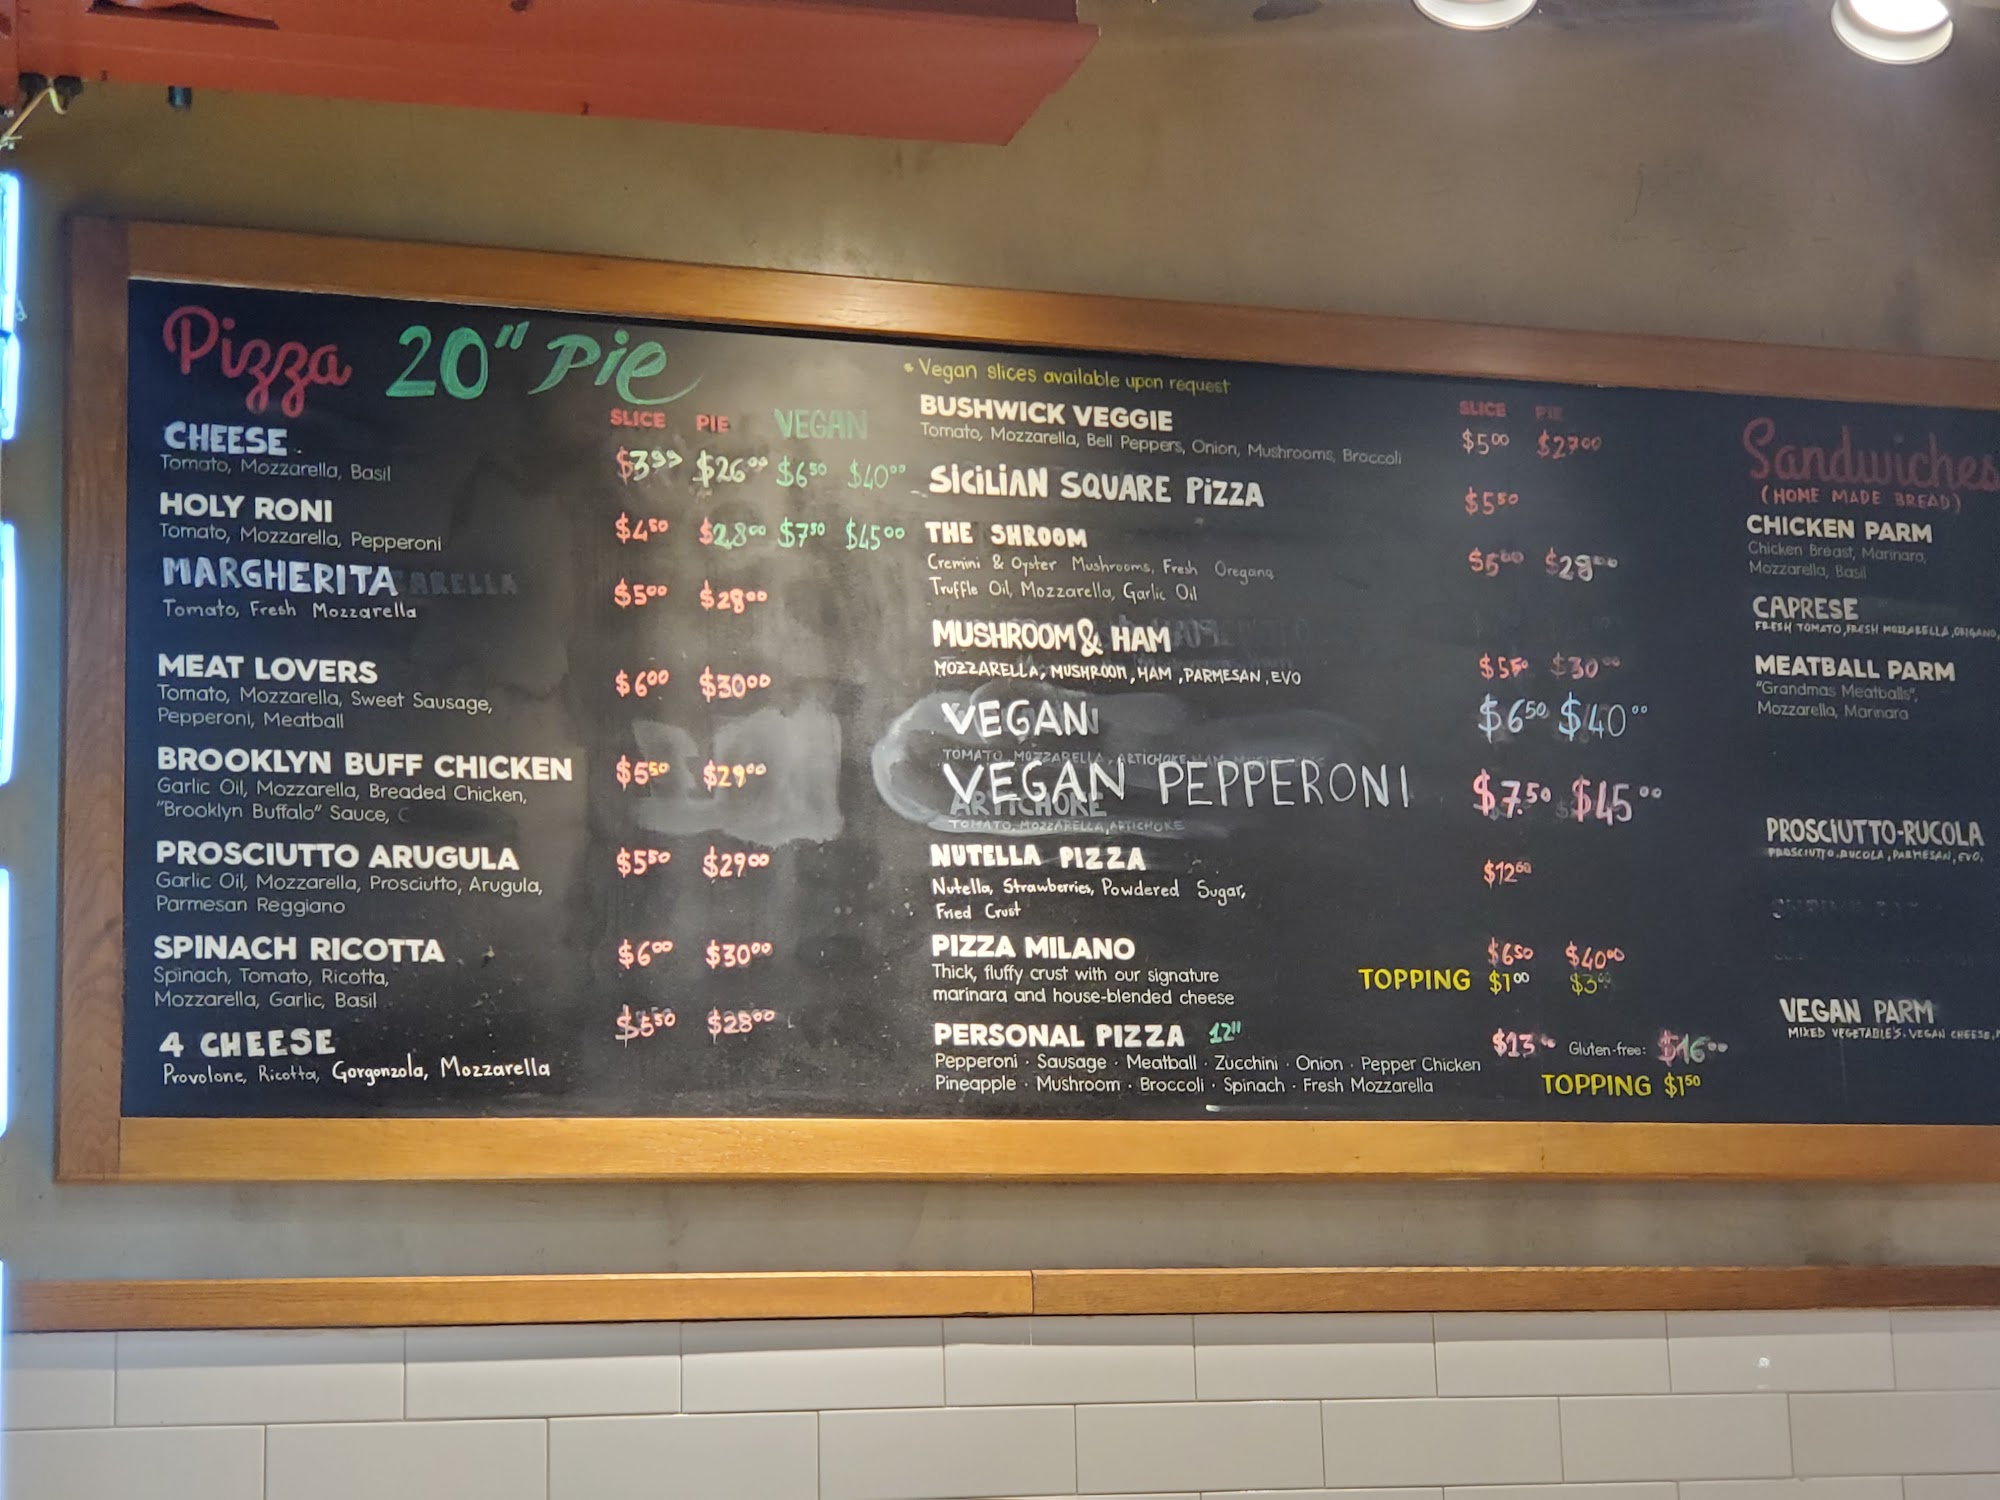 Pizza 20" Pie
SLICE PIE VEGAN
CHEESE $3⁹⁹ $26⁰⁰ $6⁵⁰ $40⁰⁰
Tomato, Mozzarella, Basil
HOLY RONI $4⁵⁰ $28⁰⁰ $7⁵⁰ $45⁰⁰
Tomato, Mozzarella, Pepperoni
MARGHERITA $5⁰⁰ $28⁰⁰
Tomato, Fresh Mozzarella
MEAT LOVERS $6⁰⁰ $30⁰⁰
Tomato, Mozzarella, Sweet Sausage,
Pepperoni, Meatball
BROOKLYN BUFF CHICKEN $5⁵⁰ $29⁰⁰
Garlic Oil, Mozzarella, Breaded Chicken,
"Brooklyn Buffalo" Sauce,
PROSCIUTTO ARUGULA $5⁵⁰ $29⁰⁰
Garlic Oil, Mozzarella, Prosciutto, Arugula,
Parmesan Reggiano
SPINACH RICOTTA $6⁰⁰ $30⁰⁰
Spinach, Tomato, Ricotta,
Mozzarella, Garlic, Basil
4 CHEESE $5⁵⁰ $28⁰⁰
Provolone, Ricotta, Gorgonzola, Mozzarella
• Vegan slices available upon request
SLICE PIE
BUSHWICK VEGGIE $5⁰⁰ $27⁰⁰
Tomato, Mozzarella, Bell Peppers, Onion, Mushrooms, Broccoli
SICILIAN SQUARE PIZZA $5⁵⁰
THE SHROOM $5⁰⁰ $29⁰⁰
Cremini & Oyster Mushrooms, Fresh Oregano,
Truffle Oil, Mozzarella, Garlic Oil
MUSHROOM & HAM
MOZZARELLA, MUSHROOM, HAM, PARMESAN, EVO $5⁵⁰ $30⁰⁰
VEGAN $6⁵⁰ $40⁰⁰
TOMATO, MOZZARELLA, ARTICHOKE
VEGAN PEPPERONI $7.⁵⁰ $45⁰⁰
ARTICHOKE
TOMATO, MOZZARELLA, ARTICHOKE
NUTELLA PIZZA $12⁶⁰
Nutella, Strawberries, Powdered Sugar,
Fried Crust
PIZZA MILANO $6⁵⁰ $40⁰⁰
Thick, fluffy crust with our signature
marinara and house-blended cheese
TOPPING $1⁰⁰ $3⁰⁰
PERSONAL PIZZA 12" $13 Gluten-free: $16⁰⁰
Pepperoni · Sausage · Meatball · Zucchini · Onion · Pepper Chicken
Pineapple · Mushroom · Broccoli · Spinach · Fresh Mozzarella
TOPPING $1⁵⁰
Sandwiches
(HOME MADE BREAD)
CHICKEN PARM
Chicken Breast, Marinara,
Mozzarella, Basil
CAPRESE
FRESH TOMATO, FRESH MOZZARELLA, ORIGANO,
MEATBALL PARM
"Grandmas Meatballs",
Mozzarella, Marinara
PROSCIUTTO-RUCOLA
PROSCIUTTO, RUCOLA, PARMESAN, EVO.
VEGAN PARM
MIXED VEGETABLE'S, VEGAN CHEESE,